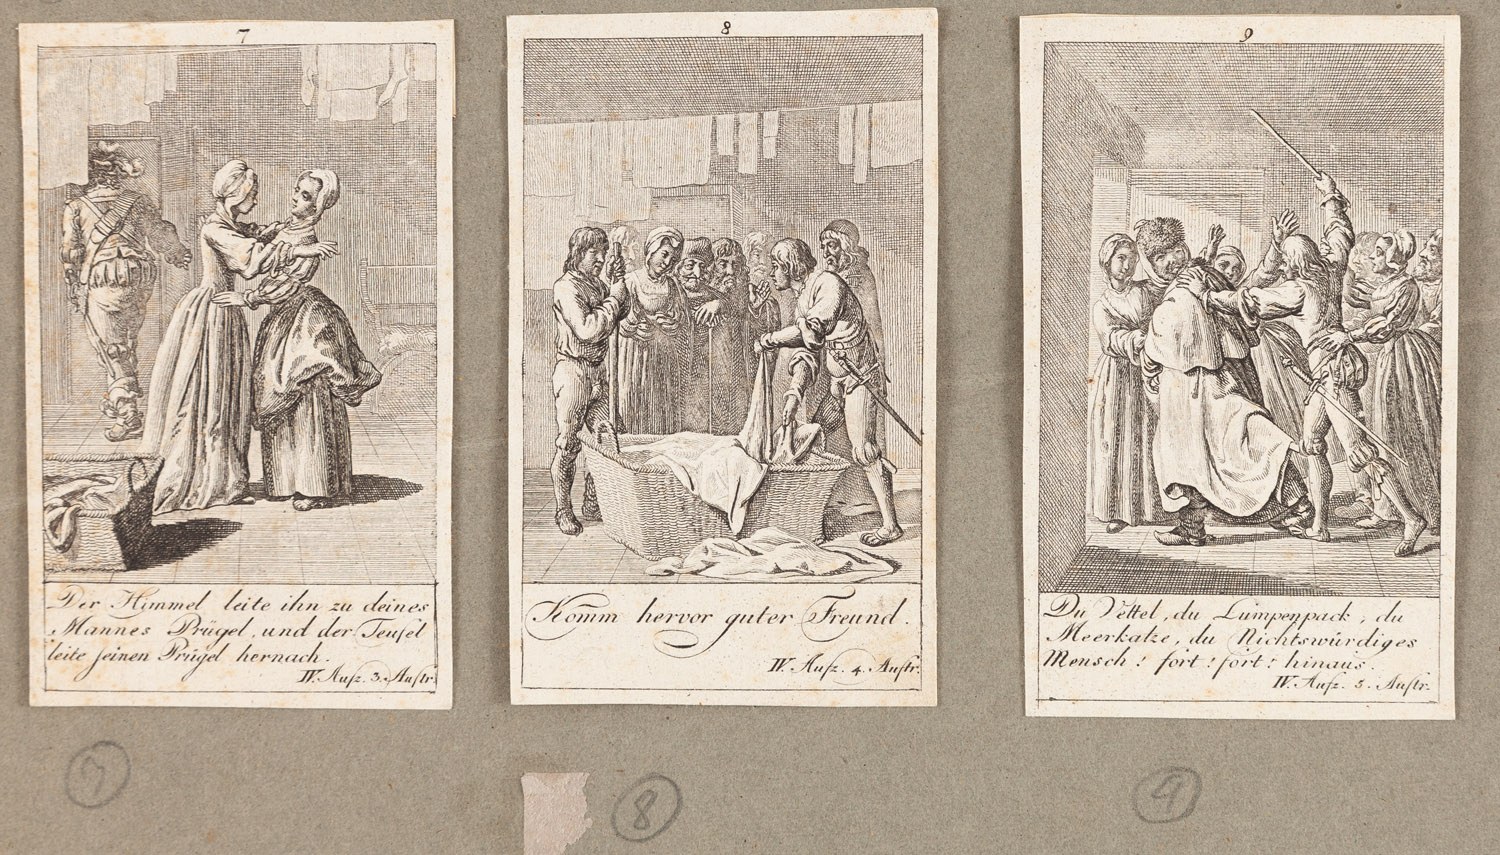 7
Der Himmel leite ihn zu deines
Mannes Prügel, und der Teufel
leite seinen Prügel hernach.
IV. Aufz. 3. Auftr.
8
Komm hervor guter Freund.
IV. Aufz. 4. Auftr.
9
Du Vettel, du Lumpenpack, du
Meerkatze, du Nichtswürdiges
Mensch! fort! fort! hinaus.
IV. Aufz. 5. Auftr.
7
8
9